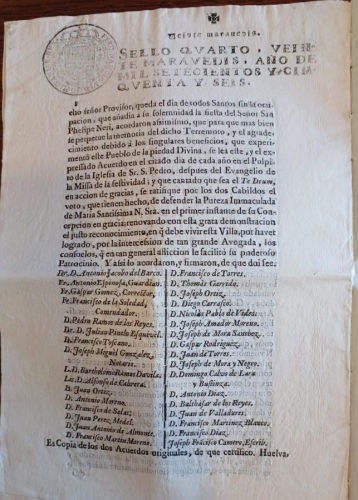 Veinte maravedis.
SELLO QVARTO, VEIN-
TE MARAVEDIS, AÑO DE
MIL SETECIENTOS Y CIN-
QVENTA Y SEIS.
cho señor Provisor, queda el dia de todos Santos sin la ocu-
pacion, que añadia à su solemnidad la fiesta del Señor San
Phelipe Neri, acordaron assimismo, que para que mas bien
se perpetue la memoria del dicho Terremoto, y el agrade-
cimiento debido à los singulares beneficios, que experi-
mentó este Pueblo de la piedad Divina, se lea este, y el ex-
pressado Acuerdo en el citado dia de cada año en el Pulpi-
to de la Iglesia de Sr. S. Pedro, despues del Evangelio de
la Missa de la festividad; y que cantado que sea el Te Deum,
en accion de gracias, se ratifique por los dos Cabildos el
voto, que tienen hecho, de defender la Pureza Inmaculada
de Maria Santissima N. Sra. en el primer instante de su Con-
cepcion en gracia; renovando con esta grata demonstracion
el justo reconocimiento, en q̃ debe vivir esta Villa, por haver
logrado, por la intercession de tan grande Avogada, los
consuelos, q̃ en tan general afliccion le facilitó su poderoso
Patrocinio. Y assi lo acordaron, y firmaron, de que doi fee.
Dr. D. Antonio Jacobo del Barco.
Fr. Antonio Espinola, Guardian.
Fr. Gaspar Gomez, Corrector.
Fr. Francisco de la Soledad,
Comendador.
D. Pedro Ramos de los Reyes.
Dr. D. Julian Pinelo Esquivel.
D. Francisco Toscano.
D. Joseph Miguel Gonzalez,
Notario.
L. D. Bartholomè Ramos Davila.
Ldo. D. Alfonso de Cabrera.
D. Juan Ortiz.
D. Antonio Morno.
D. Francisco de Salas.
D. Juan Perez, Medel.
D. Juan Antonio de Almonte.
D. Francisco Martin Moreno.
D. Francisco de Torres.
D. Thomàs Garrido.
D. Joseph Ortiz.
D. Diego Carrasco.
D. Nicolàs Pablo de Vides.
D. Joseph Amador Moreno.
D. Joseph de Mora Sanchez.
D. Gaspar Rodriguez.
D. Juan de Torres.
D. Joseph de Mora y Negro.
D. Domingo Calvo de Lara
y Bustinza.
D. Antonio Diaz.
D. Balthàsar de los Reyes.
D. Juan de Valladares.
D. Francisco Martinez, Blanco.
D. Francisco Diaz.
Joseph Frãcisco Camero, Escriv.
Es Copia de los dos Acuerdos originales, de que certifico. Huelva,